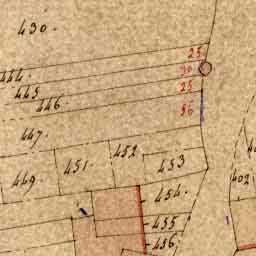 430.
25
444.
30
445
25
446
36
447.
452
451.
453
449.
402
454.
455
456